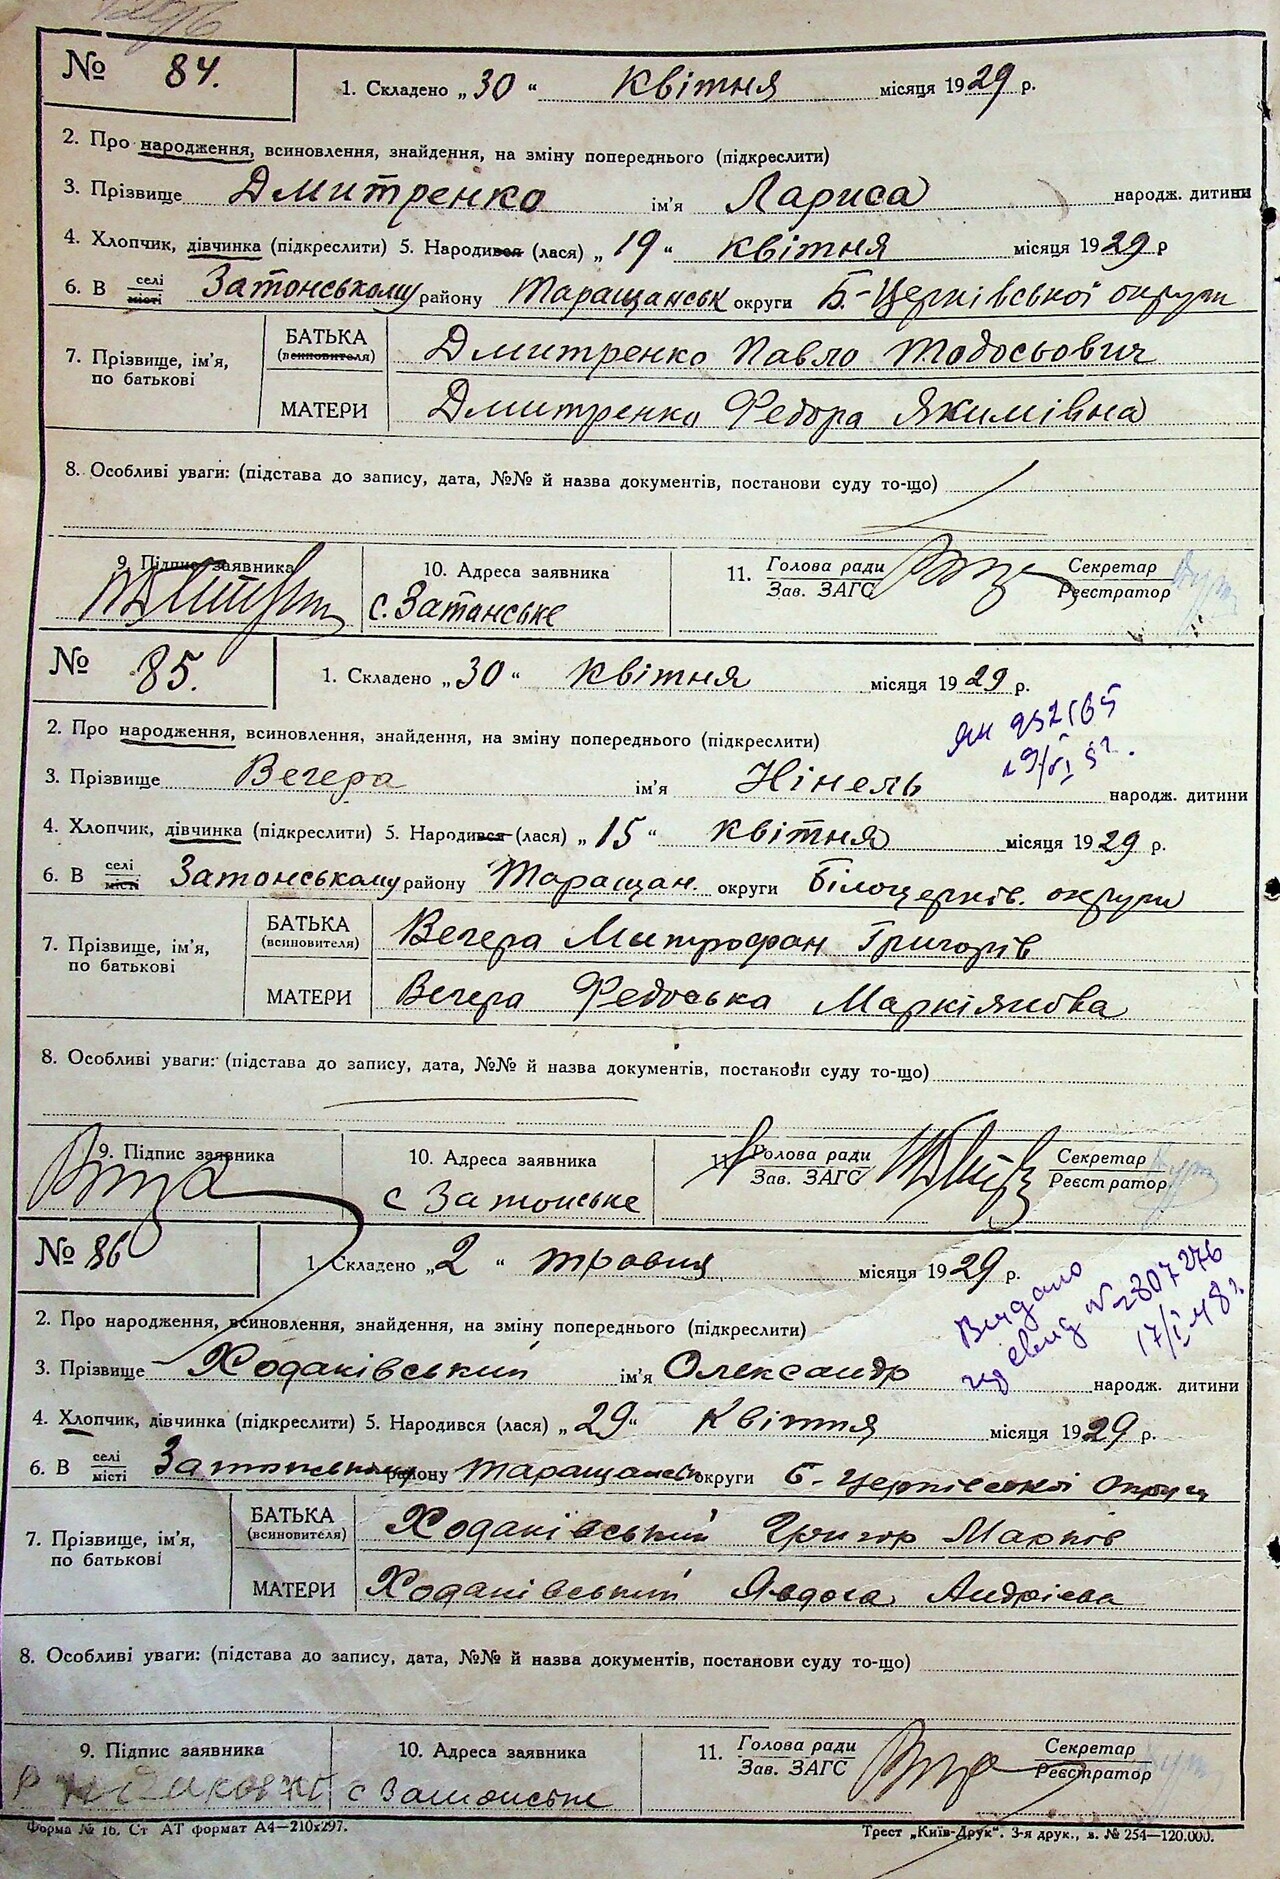 № 84.
1. Складено „30“ Квітня місяця 1929 р.
2. Про народження, всиновлення, знайдення, на зміну попереднього (підкреслити)
3. Прізвище Дмитренко ім'я Лариса народж. дитини
4. Хлопчик, дівчинка (підкреслити) 5. Народився (лася) „19“ квітня місяця 1929 р
6. В селі місті Затонському району Таращанськ округи Б.-Церківської округи
7. Прізвище, ім'я, по батькові
БАТЬКА (всиновителя) Дмитренко Павло Тодосьович
МАТЕРИ Дмитренко Федора Якимівна
8. Особливі уваги: (підстава до запису, дата, №№ й назва документів, постанови суду то-що)
9. Підпис заявника
10. Адреса заявника
с. Затонське
11. Голова ради Зав. ЗАГС
Секретар Реєстратор
№ 85.
1. Складено „30“ квітня місяця 1929 р.
2. Про народження, всиновлення, знайдення, на зміну попереднього (підкреслити)
3. Прізвище Вечера ім'я Нінель народж. дитини
4. Хлопчик, дівчинка (підкреслити) 5. Народився (лася) „15“ квітня місяця 1929 р.
6. В селі місті Затонському району Таращан. округи Білоцерків. округи
7. Прізвище, ім'я, по батькові
БАТЬКА (всиновителя) Вечера Митрофан Григорів
МАТЕРИ Вечера Федоська Маркіянова
8. Особливі уваги: (підстава до запису, дата, №№ й назва документів, постанови суду то-що)
9. Підпис заявника
10. Адреса заявника
с Затонське
11. Голова ради Зав. ЗАГС
Секретар Реєстратор
№ 86
1. Складено „2“ травня місяця 1929 р.
Видано
свид № 2807276
17/I 48 г.
2. Про народження, всиновлення, знайдення, на зміну попереднього (підкреслити)
3. Прізвище Ходаківський ім'я Олександр народж. дитини
4. Хлопчик, дівчинка (підкреслити) 5. Народився (лася) „29“ Квітня місяця 1929 р.
6. В селі місті Затонському району Таращанськ округи Б.-Церківської округи
7. Прізвище, ім'я, по батькові
БАТЬКА (всиновителя) Ходаківський Григор Марків
МАТЕРИ Ходаківський Явдоха Андрієва
8. Особливі уваги: (підстава до запису, дата, №№ й назва документів, постанови суду то-що)
9. Підпис заявника
10. Адреса заявника
с Затонське
11. Голова ради Зав. ЗАГС
Секретар Реєстратор
Форма № 16. Ст АТ формат А4—210х297.
Трест „Київ-Друк“. 3-я друк., з. № 254—120.000.